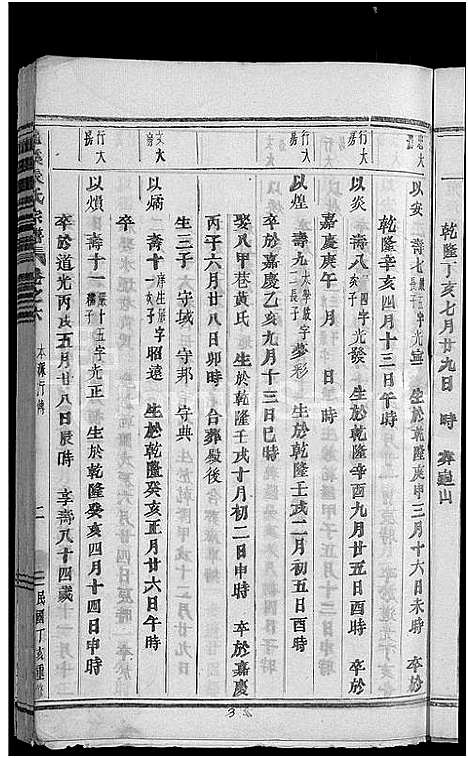 乾隆丁亥七月廿九日 時 葬
以安 壽七 光宣 生於乾隆庚申三月十六日未時 卒於
乾隆辛亥四月十三日午時
行大
以炎 壽八 四字光發 生於乾隆辛酉四月十五日酉時 卒於
嘉慶庚午 月 日 時
行大
以煌 壽九 二長子 太學 字夢彩 生於乾隆壬戌二月初五日酉時
卒於嘉慶乙亥九月十三日巳時
娶八甲巷黃氏 生於乾隆壬戌十月初二日申時 卒於嘉慶
丙子六月廿八日卯時 合葬 後
生三子 守域 守邦 守典
文大
以燆 壽十 庠生 字昭遠 生於乾隆癸亥正月廿六日午時
卒
行大
以熉 壽十一 十五字光正 生於乾隆癸亥四月十四日申時
卒於道光丙戌五月廿八日辰時 享壽八十四歲
氏宗譜 卷之六 本源行傳 二 民國丁亥重